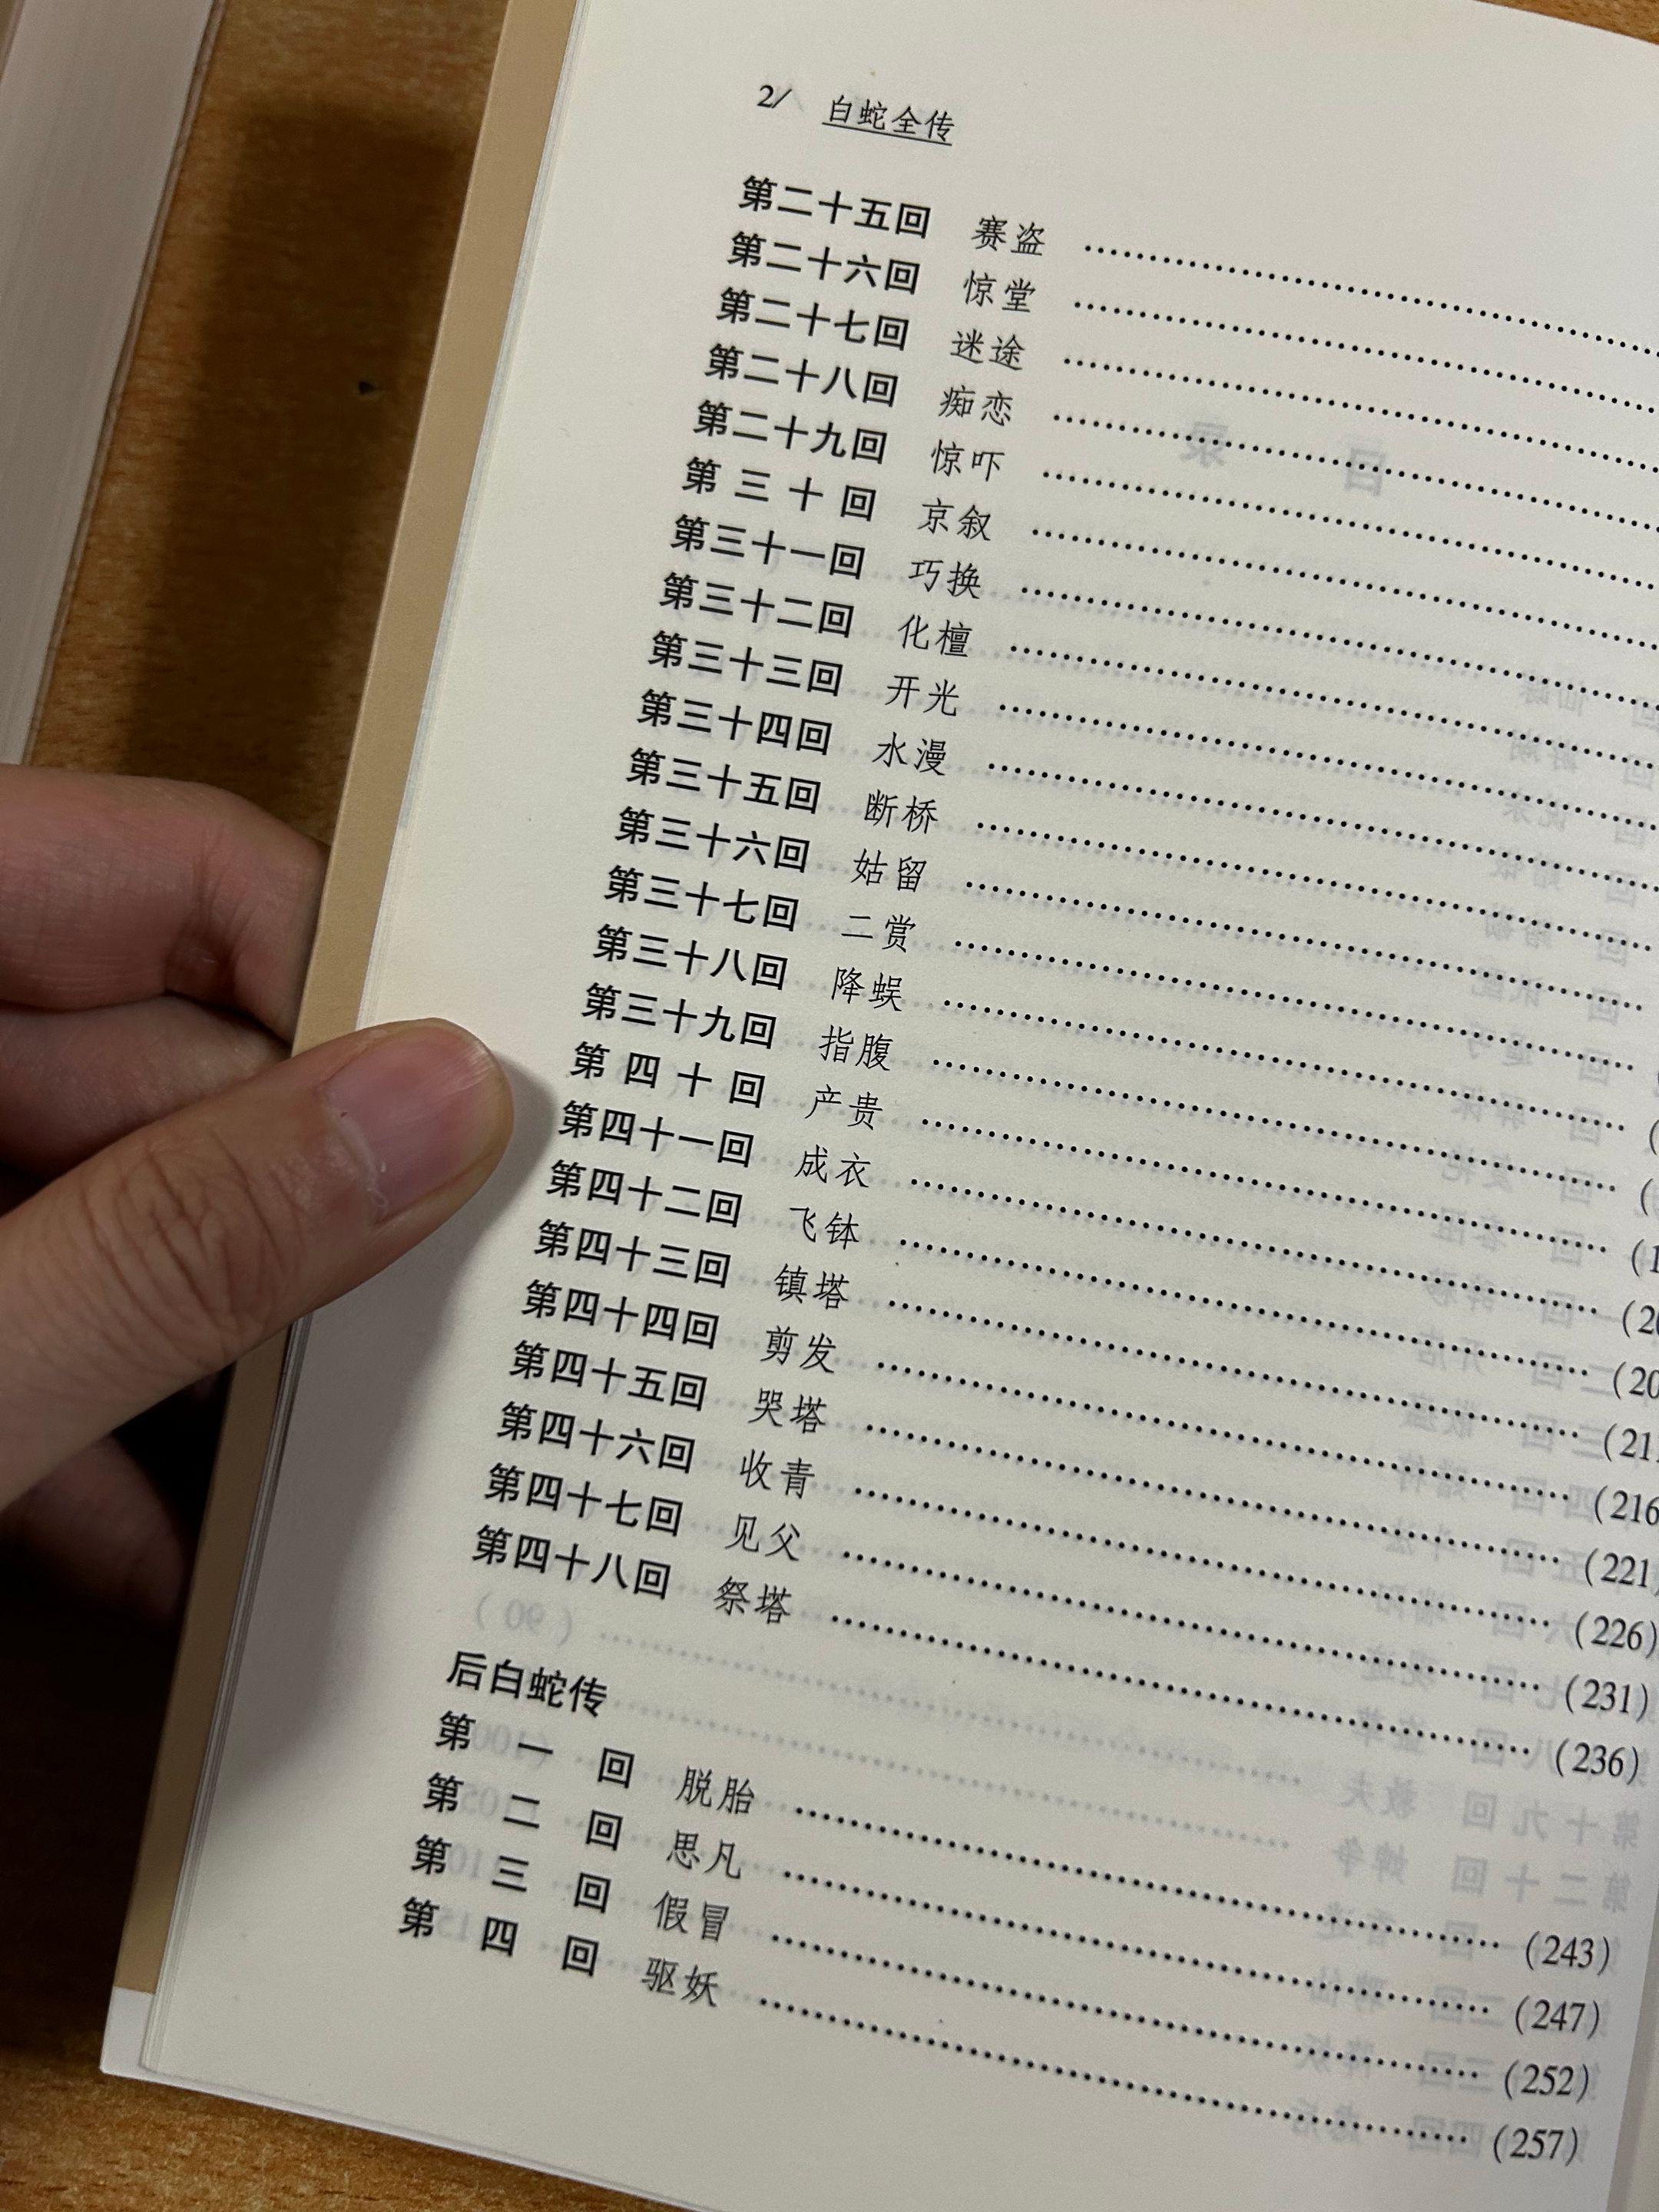 2/ 白蛇全传
第二十五回 赛盗 ……
第二十六回 惊堂 ……
第二十七回 迷途 ……
第二十八回 痴恋 ……
第二十九回 惊吓 ……
第三十回 京叙 ……
第三十一回 巧换 ……
第三十二回 化檀 ……
第三十三回 开光 ……
第三十四回 水漫 ……
第三十五回 断桥 ……
第三十六回 姑留 ……
第三十七回 二赏 ……
第三十八回 降蜈 ……
第三十九回 指腹 ……
第四十回 产贵 ……
第四十一回 成衣 ……
第四十二回 飞钵 ……
第四十三回 镇塔 ……
第四十四回 剪发 …… (216
第四十五回 哭塔 …… (221)
第四十六回 收青 …… (226)
第四十七回 见父 …… (231)
第四十八回 祭塔 …… (236)
后白蛇传
第一回 脱胎 …… (243)
第二回 思凡 …… (247)
第三回 假冒 …… (252)
第四回 驱妖 …… (257)